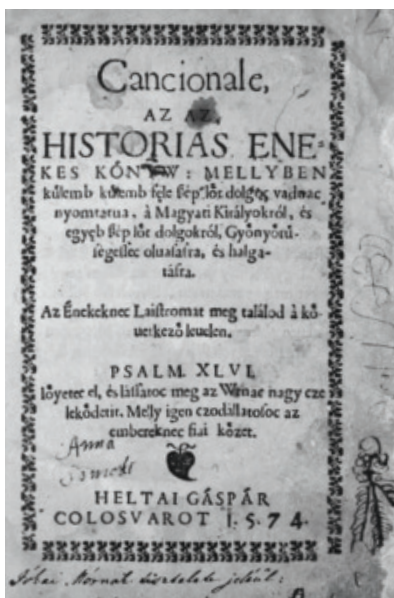 Cancionale,
AZ AZ,
HISTORIAS ENE-
KES KÖNYW: MELLYBEN
külemb külemb fęle ßęp lőt dolgoc vadnac
nyomtatua, à Magyari Királyokról, és
egyęb ßęp lőt dolgokról, Gyönyörű-
ségessec oluasásra, és halga-
tásra.
Az Énekeknec Laistromat meg találod à kö-
uetkező leuelen.
PSALM. XLVI.
Iöyetec el, és lássatoc meg az Wrnac nagy cze
lekődetit. Melly igen czodálatosoc az
embereknec fiai közęt.
Anna
HELTAI GÁSPÁR
COLOSVAROT 1.5.74.